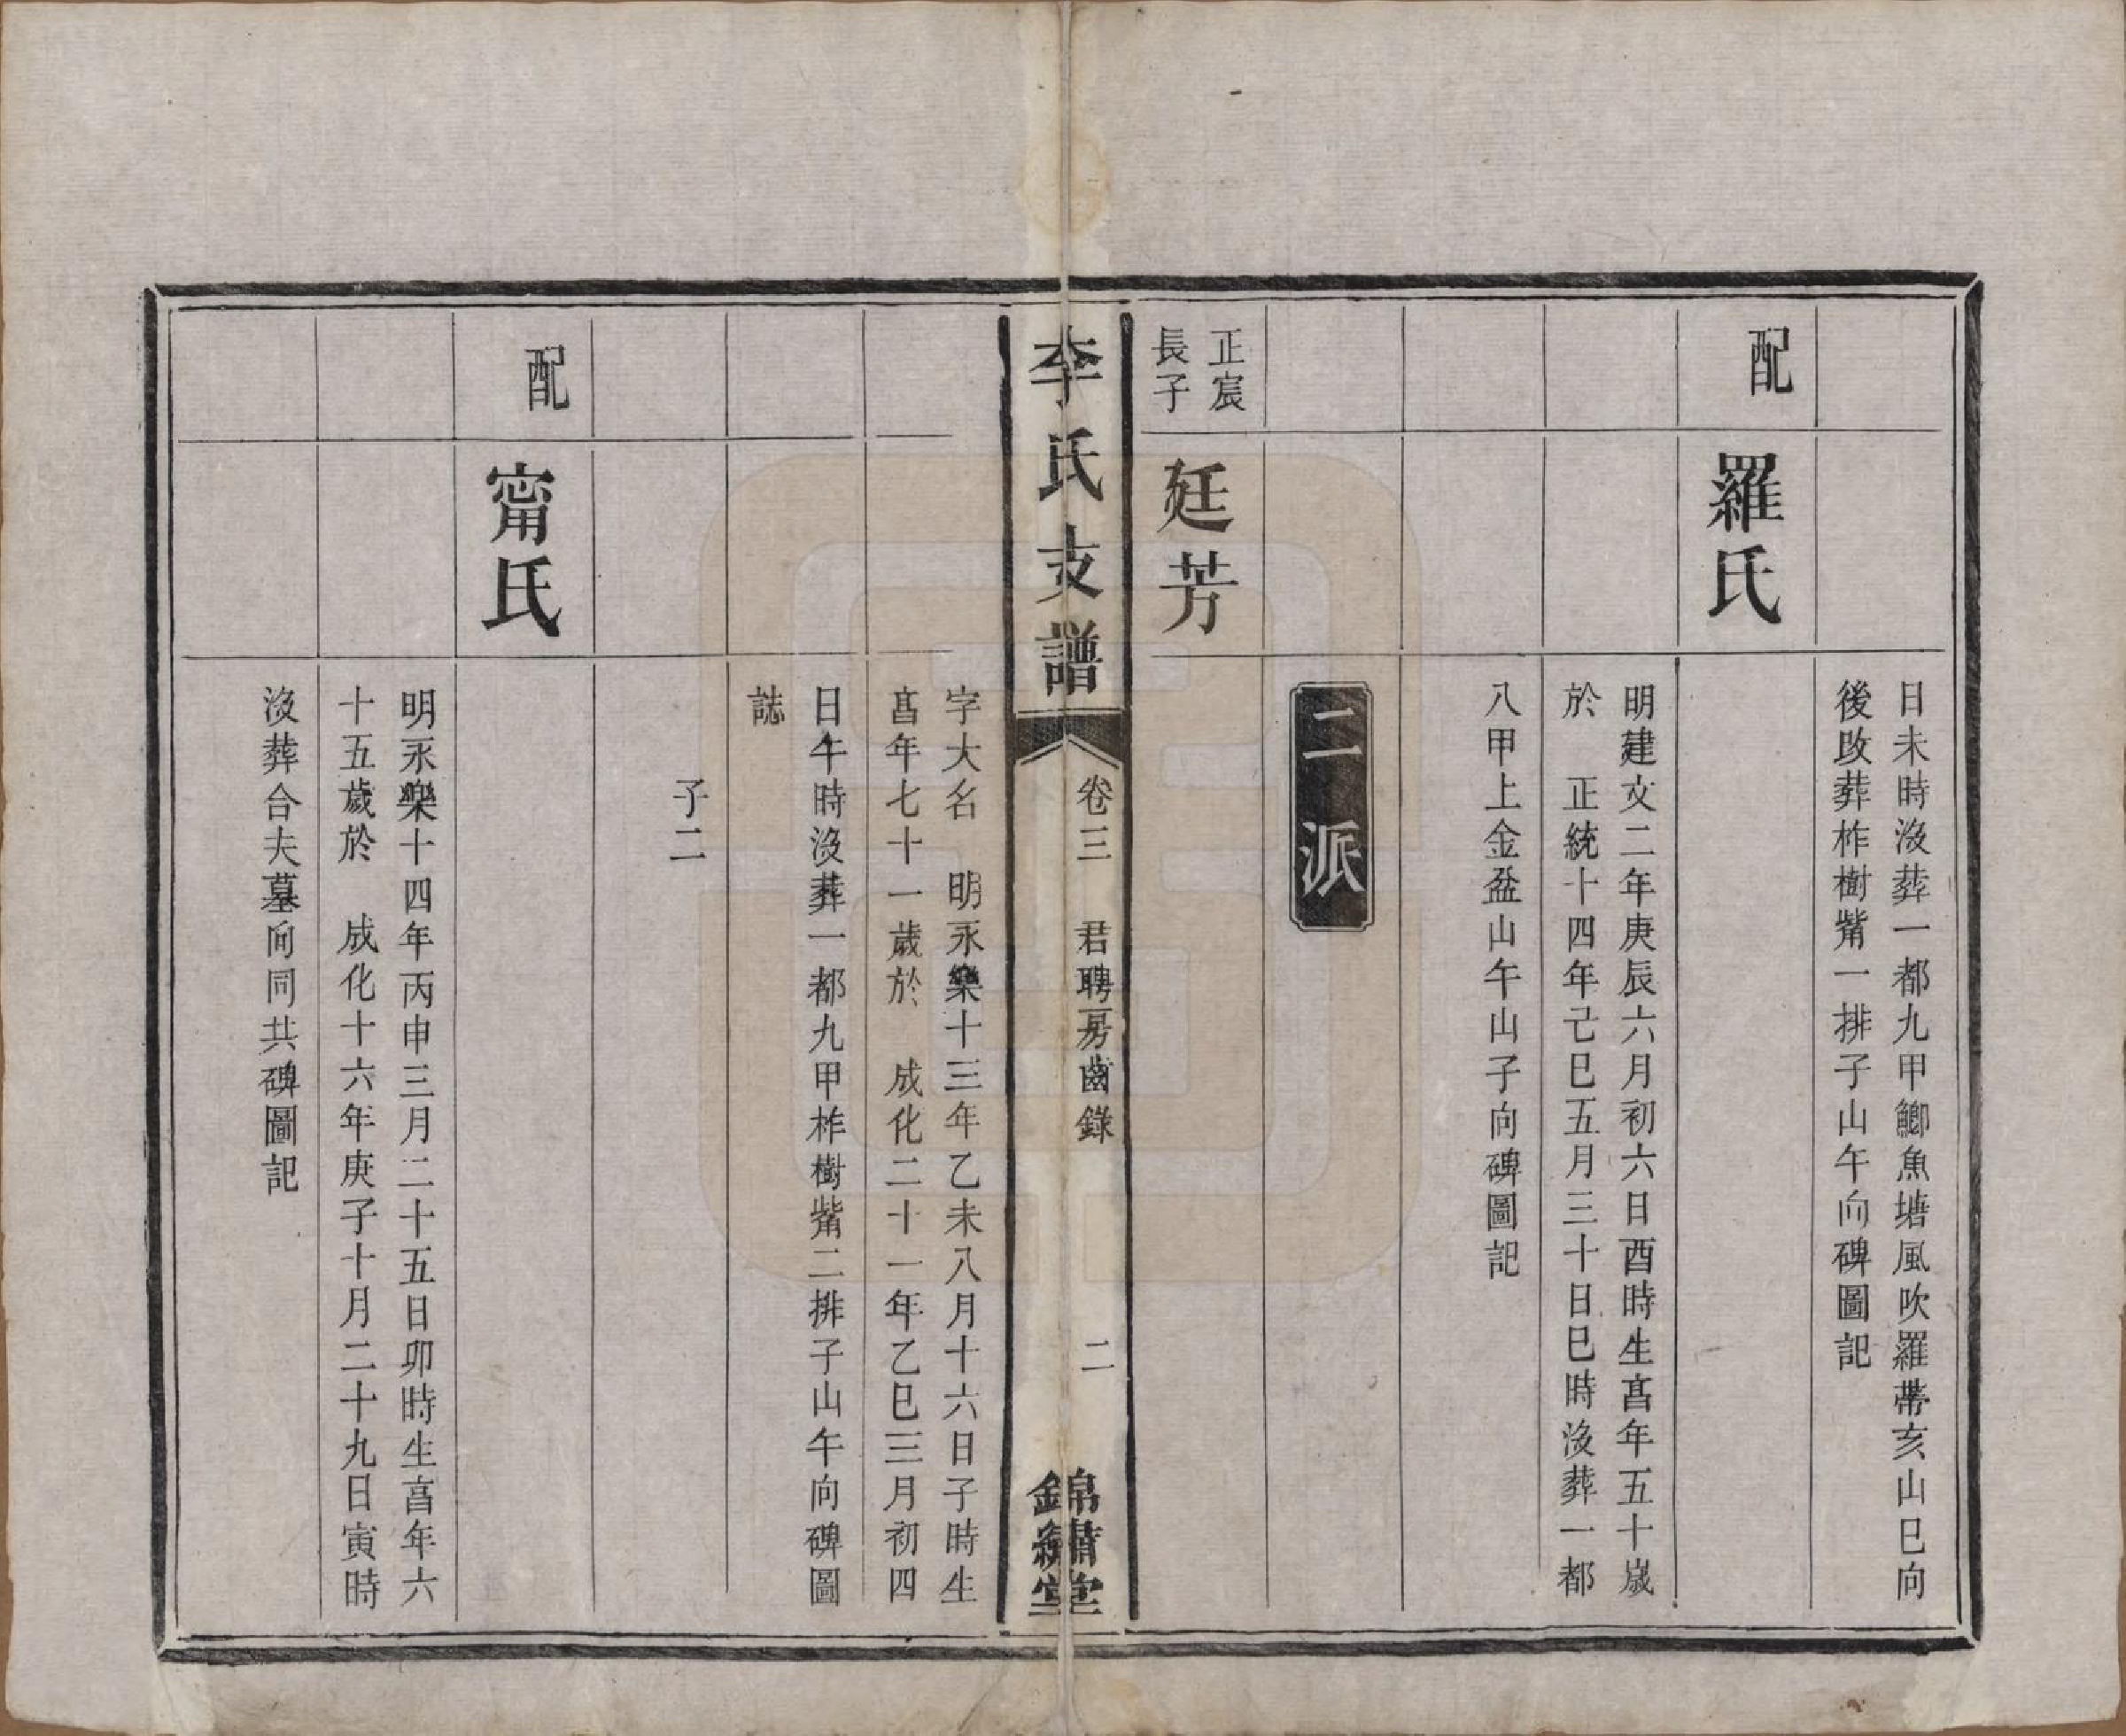 日未時沒葬一都九甲鯽魚塘風吹羅帶亥山巳向
後改葬柞樹觜一排子山午向碑圖記
配
羅氏
明建文二年庚辰六月初六日酉時生亯年五十歲
於　正統十四年己巳五月三十日巳時沒葬一都
八甲上金盆山午山子向碑圖記
二派
正宸
長子
廷芳
李氏支譜
卷三　君聘房齒錄
二
錦繡堂
字大名　明永樂十三年乙未八月十六日子時生
亯年七十一歲於　成化二十一年乙巳三月初四
日午時沒葬一都九甲柞樹觜二排子山午向碑圖
誌
子二
配
甯氏
明永樂十四年丙申三月二十五日卯時生亯年六
十五歲於　成化十六年庚子十月二十九日寅時
沒葬合夫墓向同共碑圖記